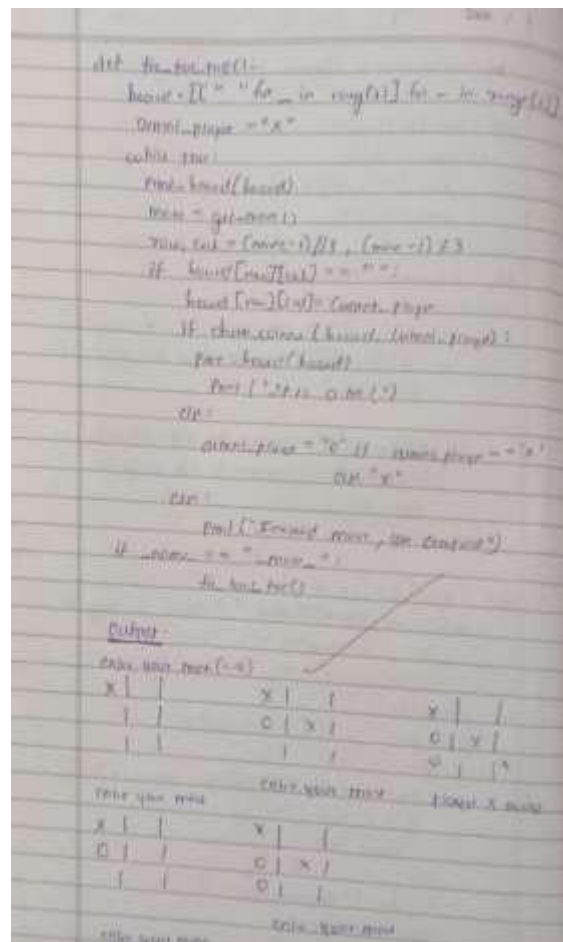 def tic_tac_toe():
board = [[" " for _ in range(3)] for _ in range(3)]
current_player = "X"
while true:
print_board(board)
move = get_move()
row, col = (move-1)//3, (move-1)%3
if board[row][col] == " ":
board[row][col] = current_player
if check_winner(board, current_player):
print_board(board)
print("It is a tie!")
else:
current_player = "O" if current_player == "X"
else "X"
else:
print("Invalid move,
if _name_ == "_main_":
tic_tac_toe()
Output:
enter your move (1-9)
X | | X | | X | |
| | O | X | O | X |
| | | | O | |
enter your move enter your move player X wins
X | | X | |
O | | O | X |
| | O | |
enter your move
enter your move